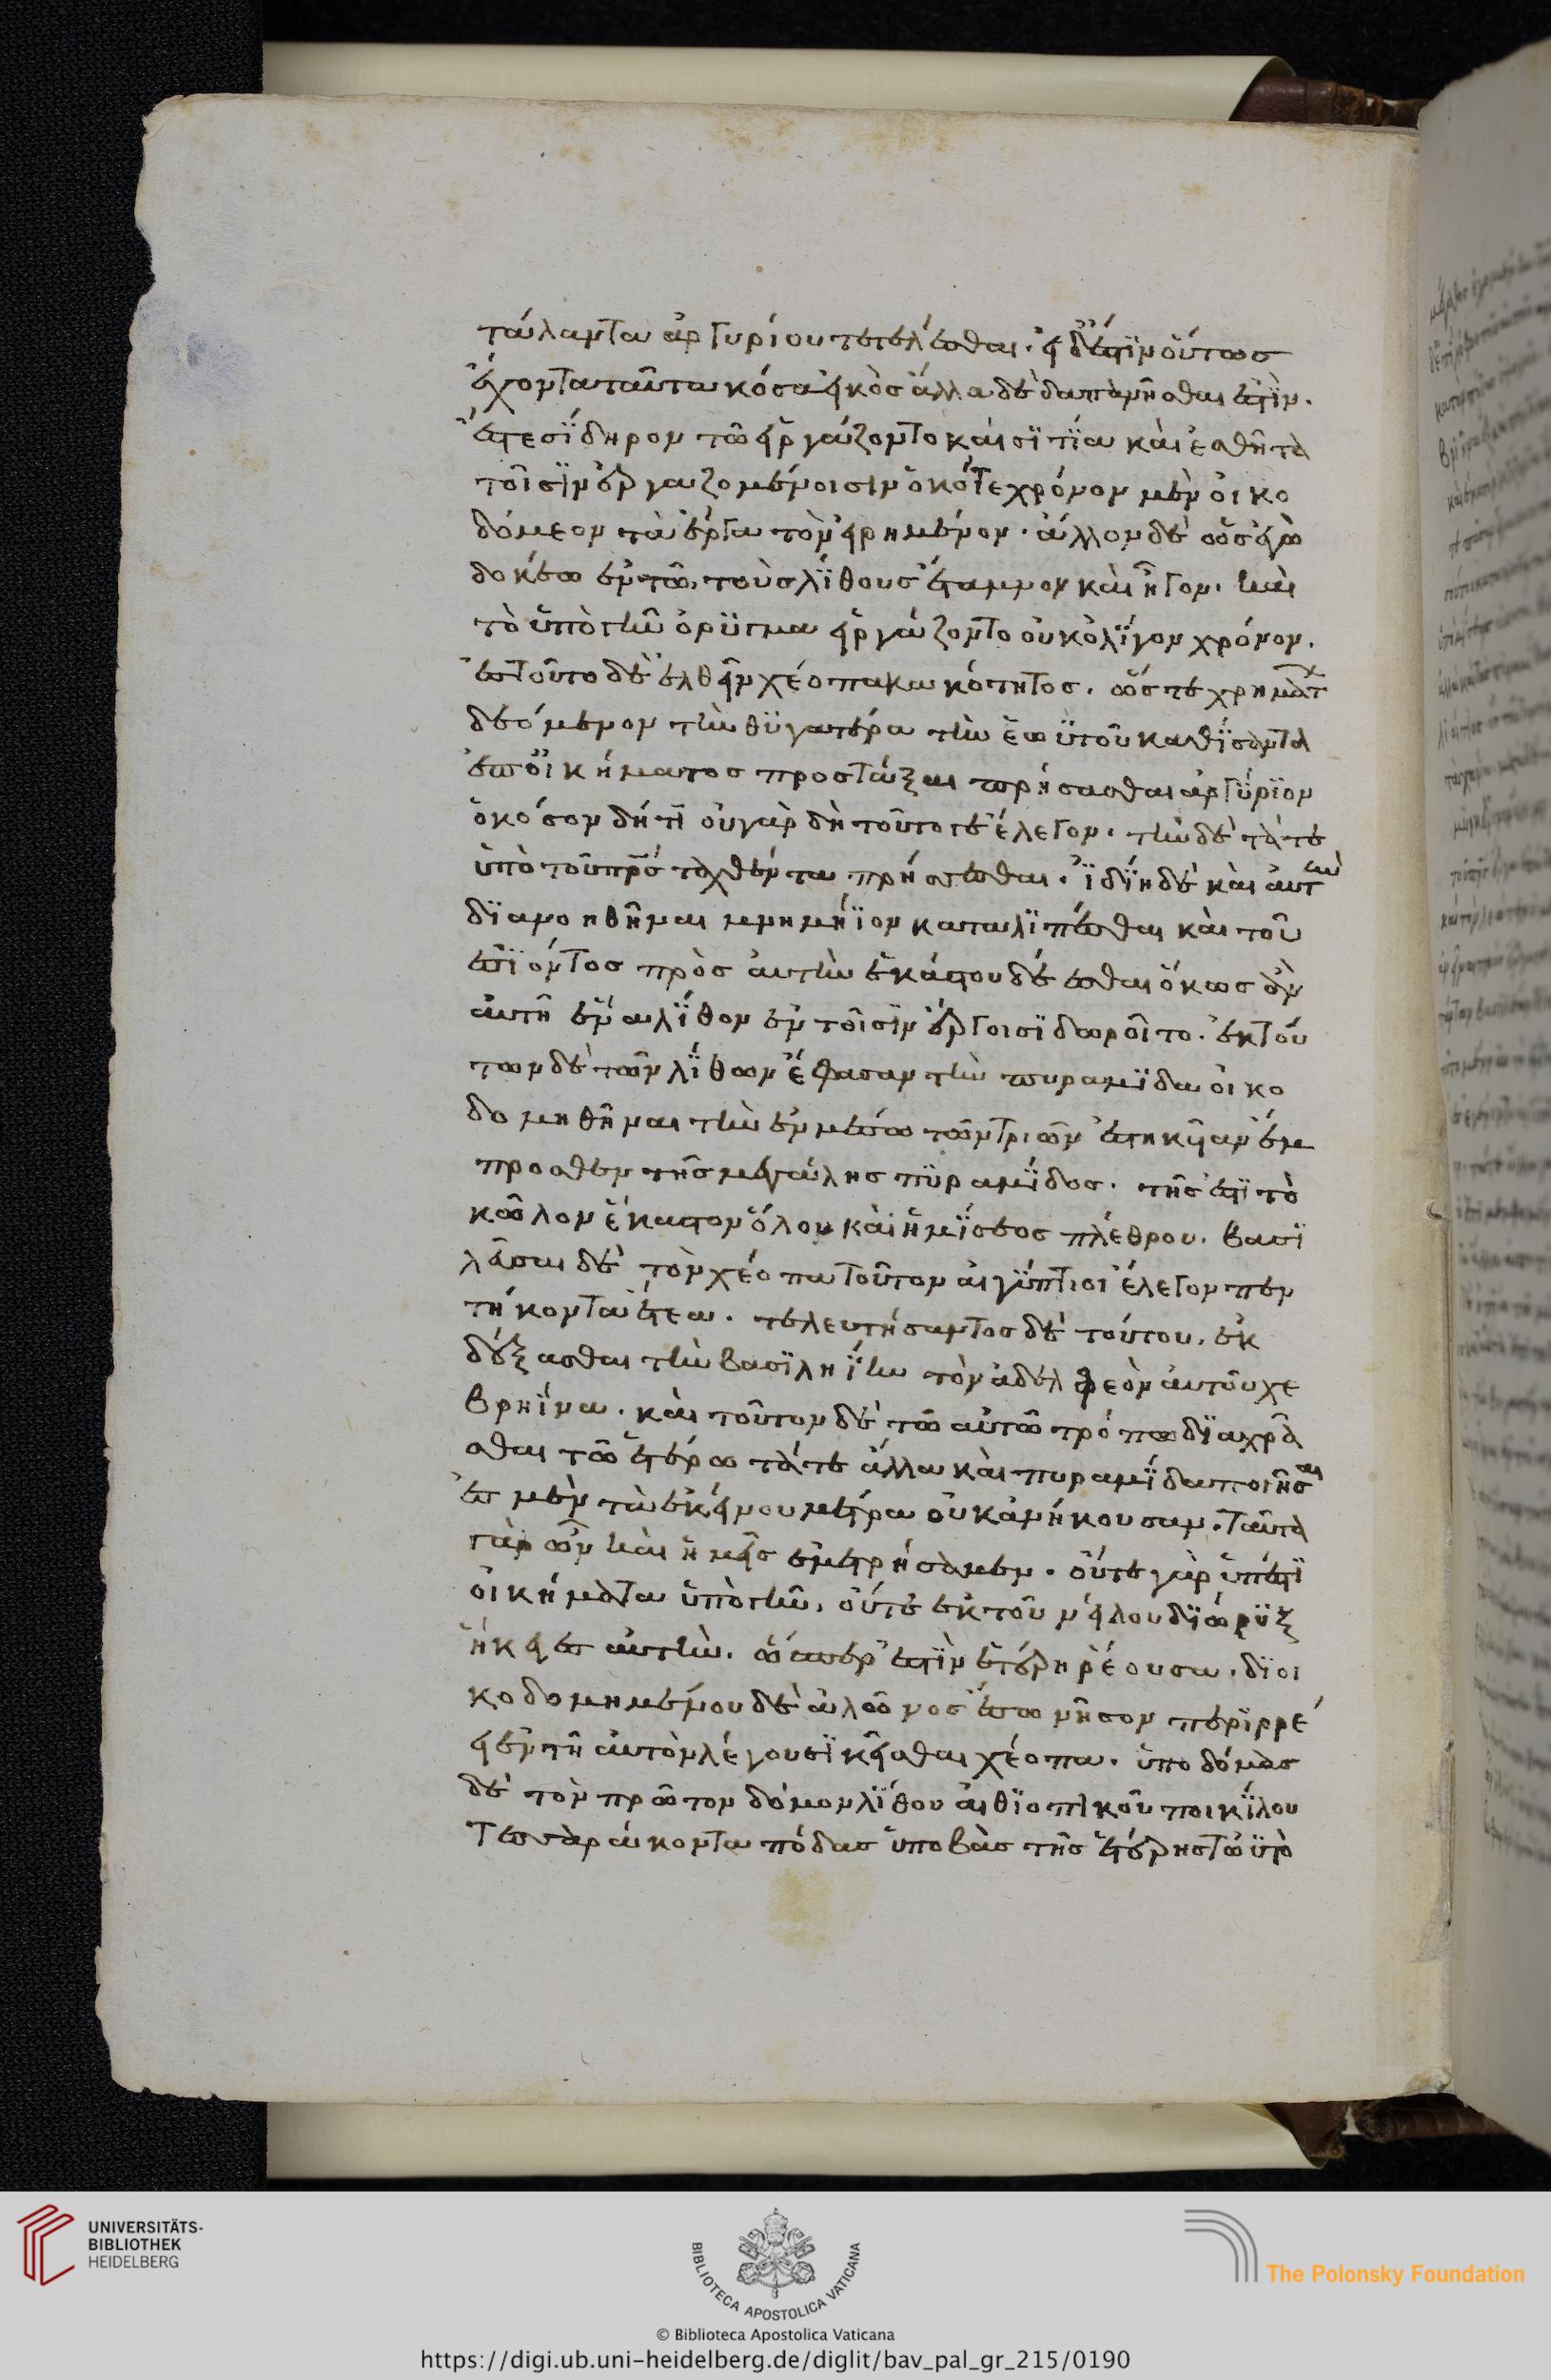 τάλαντα ἀργυρίου τετελέσθαι. εἰ δ' ἔστϊν οὕτωσ
ἔχοντα ταῦτα κόσα εἰκὸσ ἄλλα δεδαπανῆσθαι ἐστῒν.
ἔστε σΐδηρον τῶ εἰργάζοντο καὶ σϊτΐα καὶ ἐσθῆτα
τοῖσϊν ἐργαζομένοισιν ὁκότε χρόνον μὲν οἰκο
δόμεον τὰ ἔργα τὸν εἰρημένον. ἄλλον δὲ ὡσ ἐγὼ
δοκέω ἐν τῶ, τοὺσ λΐθουσ ἔταμνον καὶ ἦγον. καὶ
τὸ ὑπὸ γῆν ὄρϋγμα εἰργάζοντο οὐκ ὀλΐγον χρόνον.
ἐσ τοῦτο δὲ ἐλθεῖν χέοπα κακότητοσ. ὥστε χρημάτ
δεόμενον τὴν θϋγατέρα τὴν ἑωϋτοῦ κατΐσαντα
ἐπ' οἰκήματοσ προστάξαι πρήσασθαι ἀργΰρϊον
ὁκόσον δή τϊ οὐ γὰρ δὴ τοῦτο γε ἔλεγον. τὴν δὲ τά τε
ὑπὸ τοῦ πρσ ταχθέντα πρήσσεσθαι. ἰδΐη δὲ καὶ αὐτὴν
δϊανοηθῆναι μνημήϊον καταλϊπέσθαι καὶ τοῦ
ἐσϊόντοσ πρὸσ αὐτὴν ἑκάστου δέεσθαι ὅκωσ ἂν
αὐτῆ ἕνα λΐθον ἐν τοῖσϊν ἔργοισϊ δωροῖτο. ἐκ τού
των δὲ τῶν λΐθων ἔφασαν τὴν πυραμΐδα οἰκο
δομηθῆναι τὴν ἐν μέσω τῶν τριῶν ἑστηκυῖαν ἔμ
προσθεν τῆσ μεγάλησ πϋραμΐδοσ. τῆσ ἐστϊ τὸ
κῶλον ἕκαστον ὅλου καὶ ἡμΐσεοσ πλέθρου. βασϊ
λεῦσαι δὲ τὸν χέοπα τοῦτον αἰγΰπτιοι ἔλεγον πεν
τήκοντα ἔτεα. τελευτήσαντοσ δὲ τούτου, ἐκ
δέξασθαι τὴν βασϊληΐην τὸν ἀδελφεὸν αὐτοῦ χε
βρηῖνα. καὶ τοῦτον δὲ τῶ αὐτῶ τρόπω δϊαχρᾶ
σθαι τῶ ἑτέρω τά τε ἄλλα καὶ πυραμΐδα ποιῆσαι
ἐσ μὲν τὰ ἐκείνου μέτρα οὐκ ἀνήκουσαν. ταῦτα
γὰρ ὦν καὶ ἡμεῖσ ἐμετρήσαμεν. οὔτε γὰρ ὕπεστϊ
οἰκήματα ὑπὸ γῆν, οὔτε ἐκ τοῦ νείλου δϊῶρϋξ
ἥκει ἐσ αὐτὴν. ὥσπερ ἐστῒν ἑτέρη ῥέουσα. δϊοι
κοδομημένου δὲ αὐλῶνοσ ἔσω νῆσον περϊρρέ
ει ἐν τῆ αὐτὸν λέγουσϊ κεῖσθαι χέοπα. ὑποδείμασ
δὲ τὸν πρῶτον δόμον λΐθου αἰθϊοπικοῦ ποικΐλου
τεσσαράκοντα πόδασ ὑποβὰσ τῆσ ἑτέρησ τὠϋτὸ
UNIVERSITÄTS-
BIBLIOTHEK
HEIDELBERG
BIBLIOTECA APOSTOLICA VATICANA
The Polonsky Foundation
© Biblioteca Apostolica Vaticana
https://digi.ub.uni-heidelberg.de/diglit/bav_pal_gr_215/0190